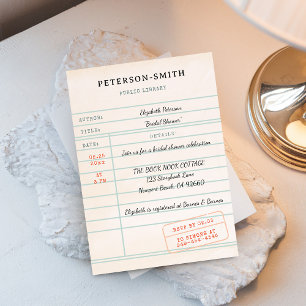 PETERSON-SMITH
PUBLIC LIBRARY
AUTHOR: Elizabeth Peterson
TITLE: Bridal Shower
DATE: DETAILS
06.25
20XX
Join us for a bridal shower celebration
AT
3 PM
THE BOOK NOOK COTTAGE
123 Storybook Lane
Newport Beach, CA 92660
Elizabeth is registered at Barnes & Barnes
RSVP BY
TO SIMONE AT